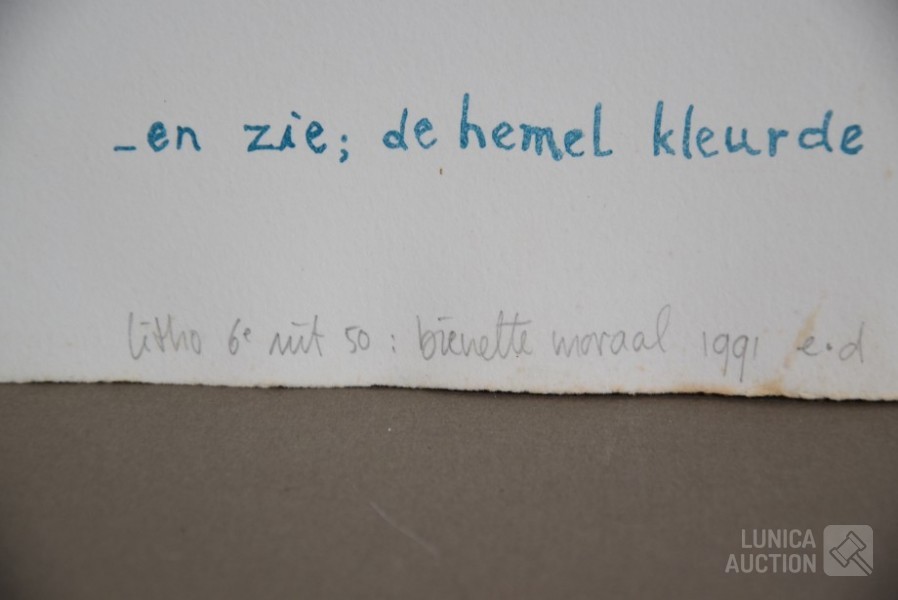 _en zie; de hemel kleurde
litho 6e uit 50 : bienette moraal 1991 e.d
LUNICA
AUCTION